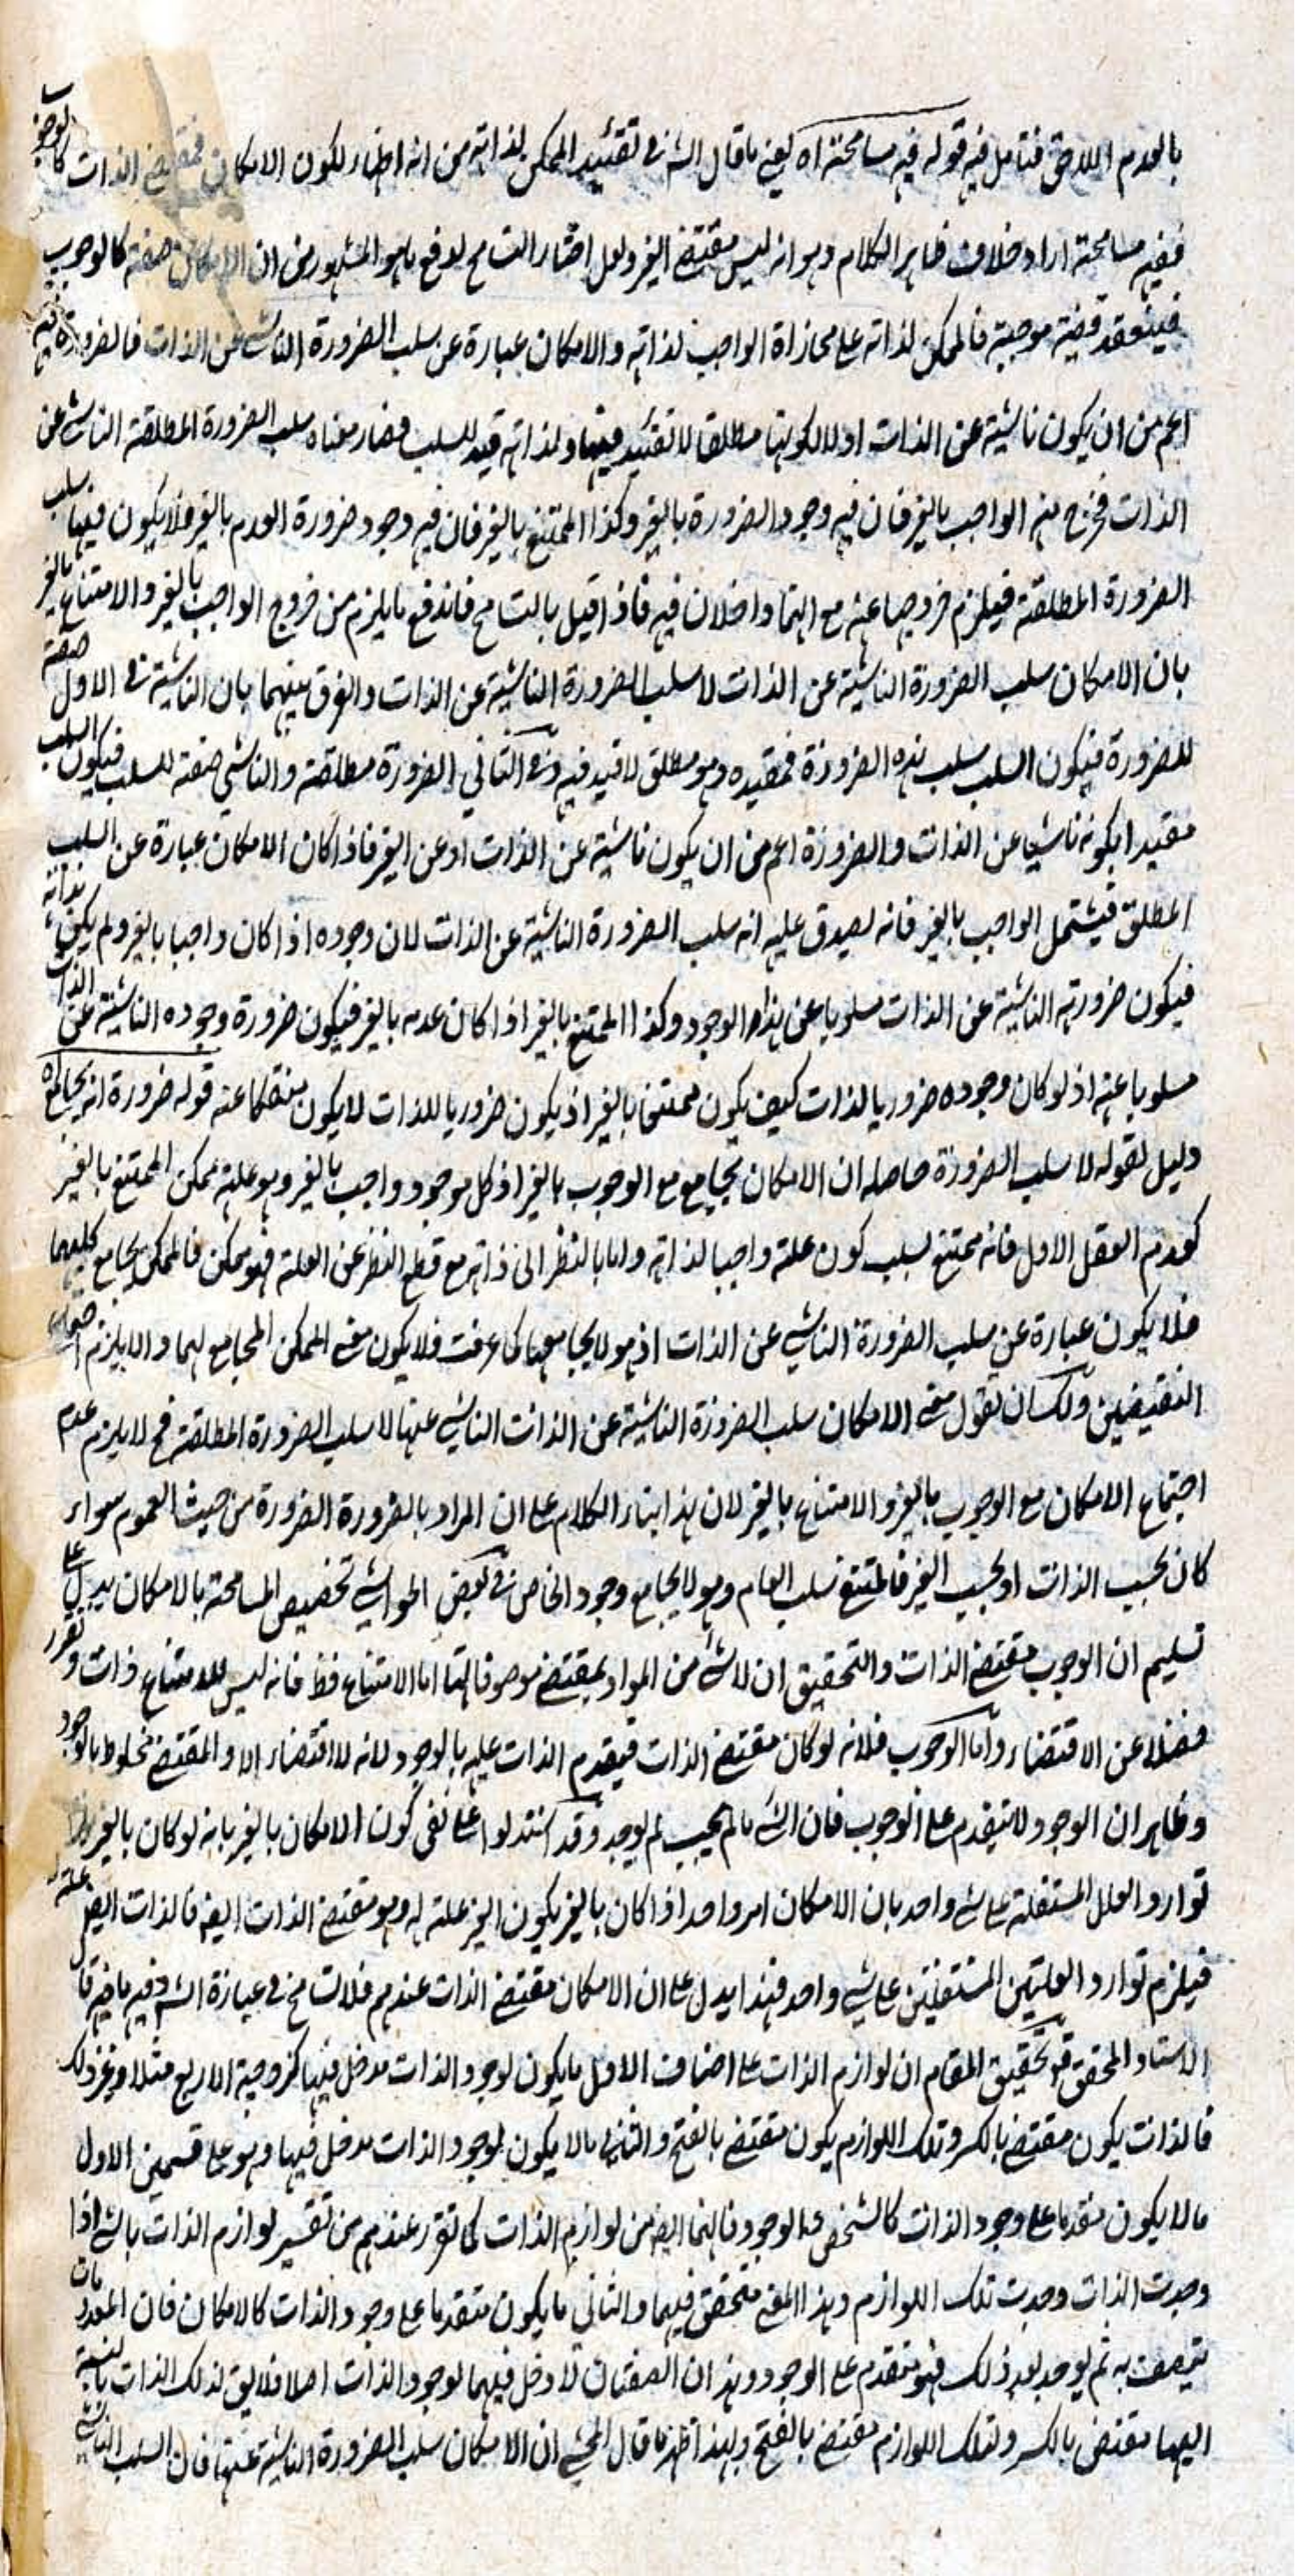 بالعدم اللاحق فتامل فيه قوله فيه مسامحته اه يعني ما قال الش في تقييد الممكن لذاته من انه اظهار لكون الامكان مقتضى الذات كالوجوب
ففيه مسامحة اراد خلاف ظاهر الكلام وهو انه ليس مقتضى الغير ولعل اختار التسامح لدفع ما هو المشهور من ان الامكان صفة كالوجوب
فينعقد قضية موجبة فالممكن لذاته على محاذاة الواجب لذاته والامكان عبارة عن سلب الضرورة الناشي عن الذات فالضرورة فيه
اعم من ان يكون ناشية عن الذات او لا لكونها مطلقا لا تقييد فيها ولذاته قيد للسلب فصار معناه سلب الضرورة المطلقة الناشي عن
الذات فخرج منه الواجب بالغير فان فيه وجود الضرورة بالغير وكذا الممتنع بالغير فان فيه وجود ضرورة العدم بالغير فلا يكون فيها سلب
الضرورة المطلقة فيلزم خروجها عنه مع انهما داخلان فيه فاذا قيل بالتسامح فاندفع ما يلزم من خروج الواجب بالغير والامتناع بالغير
بان الامكان سلب الضرورة الناشية عن الذات لا سلب الضرورة الناشية عن الذات والفرق بينهما بان الناشية في الاول صفة
للضرورة فيكون السلب سلب هذه الضرورة فمقيده وهو مطلق لا قيد فيه وفي الثاني الضرورة مطلقة والناشي صفة للسلب فيكون السلب
مقيدا بكونه ناشيا عن الذات والضرورة اعم من ان يكون ناشية عن الذات او عن الغير فاذا كان الامكان عبارة عن السلب
المطلق فيشتمل الواجب بالغير فانه يصدق عليه انه سلب الضرورة الناشية عن الذات لان وجوده اذا كان واجبا بالغير ولم يكن بذاته
فيكون ضرورته الناشية عن الذات مسلوبا عن هذا الوجود وكذا الممتنع بالغير اذا كان عدمه بالغير فيكون ضرورة وجوده الناشئة عن الذات
مسلوبا عنه اذ لو كان وجوده ضروريا لذات كيف يكون ممتنعا بالغير اذ يكون ضروريا للذات لا يكون منفكا عنه قوله ضرورة انه يجامع اه
دليل لقوله لا سلب الضرورة حاصله ان الامكان يجامع مع الوجوب بالغير اذ كل موجود واجب بالغير وهو علته ممكن الممتنع بالغير
كعدم العقل الاول فانه ممتنع بسلب كون علته واجبا لذاته واما بالنظر الى ذاته مع قطع النظر عن العلة فهو ممكن فالممكن يجامع كليهما
فلا يكون عبارة عن سلب الضرورة الناشي عن الذات اذ هو لا يجامعهما كما عرفت فلا يكون معنى الممكن المجامع لهما والا يلزم اجتماع
النقيضين ولك ان تقول معنى الامكان سلب الضرورة الناشية عن الذات الناشي عنها لا سلب الضرورة المطلقة فح لا يلزم عدم
اجتماع الامكان مع الوجوب بالغير والامتناع بالغير لان هذا ابتناء الكلام على ان المراد بالضرورة الضرورة من حيث العموم سواء
كان بحسب الذات او بحسب الغير فالممتنع سلب العام وهو لا يجامع وجود الخاص في بعض الحواشي تخصيص المسامحة بالامكان يدل على
تسليم ان الوجوب مقتضى الذات والتحقيق ان لا شئ من المواد بمقتضى موصوفاتها اما الامتناع فظ فانه ليس للامتناع ذات وتقرر
فضلا عن الاقتضاء واما الوجوب فلانه لو كان مقتضى الذات فيقدم الذات عليه بالوجود لانه لا اقتضاء الا والمقتضي مخلوط بالوجود
وظاهر ان الوجود لا يتقدم على الوجوب فان الشئ ما لم يجب لم يوجد وقد استدلوا على نفي كون الامكان بالغير بانه لو كان بالغير لزم
توارد العلل المستقلة على شئ واحد بان الامكان امر واحد اذا كان بالغير يكون الغير علة له وهو مقتضى الذات ايضا فالذات ايضا علة له
فيلزم توارد العلتين المستقلتين على شئ واحد فهذا يدل على ان الامكان مقتضى الذات عندهم فلا تسامح في عبارة الش وفيه ما فيه قال
الاستاد المحقق قو تحقيق المقام ان لوازم الذات على اصناف الاول ما يكون لوجود الذات مدخل فيها كزوجية الاربع مثلا وغير ذلك
فالذات يكون مقتضي بالكسر وتلك اللوازم يكون مقتضى بالفتح والثاني ما لا يكون لوجود الذات مدخل فيها وهو على قسمين الاول
ما لا يكون متقدما على وجود الذات كالتشخص والوجود فانهما ايضا من لوازم الذات كما تقرر عندهم من تفسير لوازم الذات بالشئ اذا
وجدت الذات وجدت تلك اللوازم وهذا المعنى متحقق فيهما والثاني ما يكون متقدما على وجود الذات كالامكان فان المعدومات
يتصف به ثم يوجد بعد ذلك فهو متقدم على الوجود وهذان الصفتان لا دخل فيهما لوجود الذات اصلا فلا يق لذلك الذات بالنسبة
اليهما مقتضي بالكسر ولتلك اللوازم مقتضى بالفتح وبهذا ظهر ما قال المحشي ان الامكان سلب الضرورة الناشية عنها فان السلب الناشي